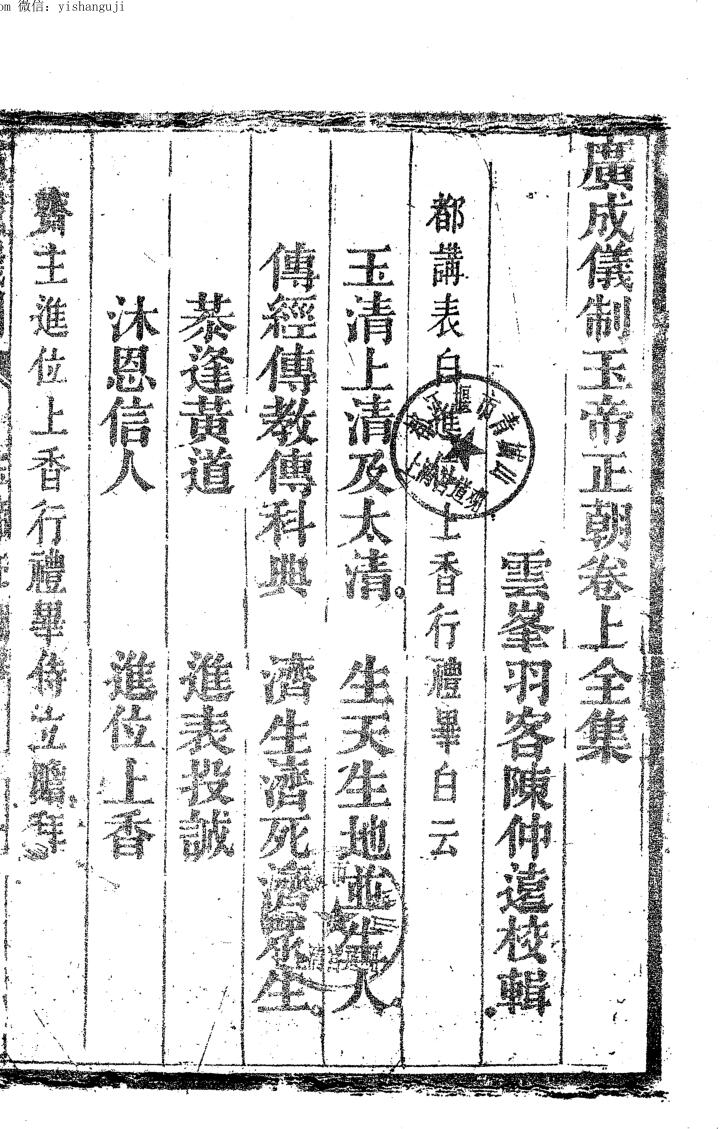 om 微信：yishanguji
廣成儀制玉帝正朝卷上全集
雲峯羽客陳仲遠校輯
都講表白進位上香行禮畢白云
玉清上清及太清。 生天生地並生人。
傳經傳教傳科典 濟生濟死濟眾生。
恭逢黃道 進表投誠
沐恩信人 進位上香
齋主進位上香行禮畢侍立瞻拜
堰市青城山
上清宮道觀